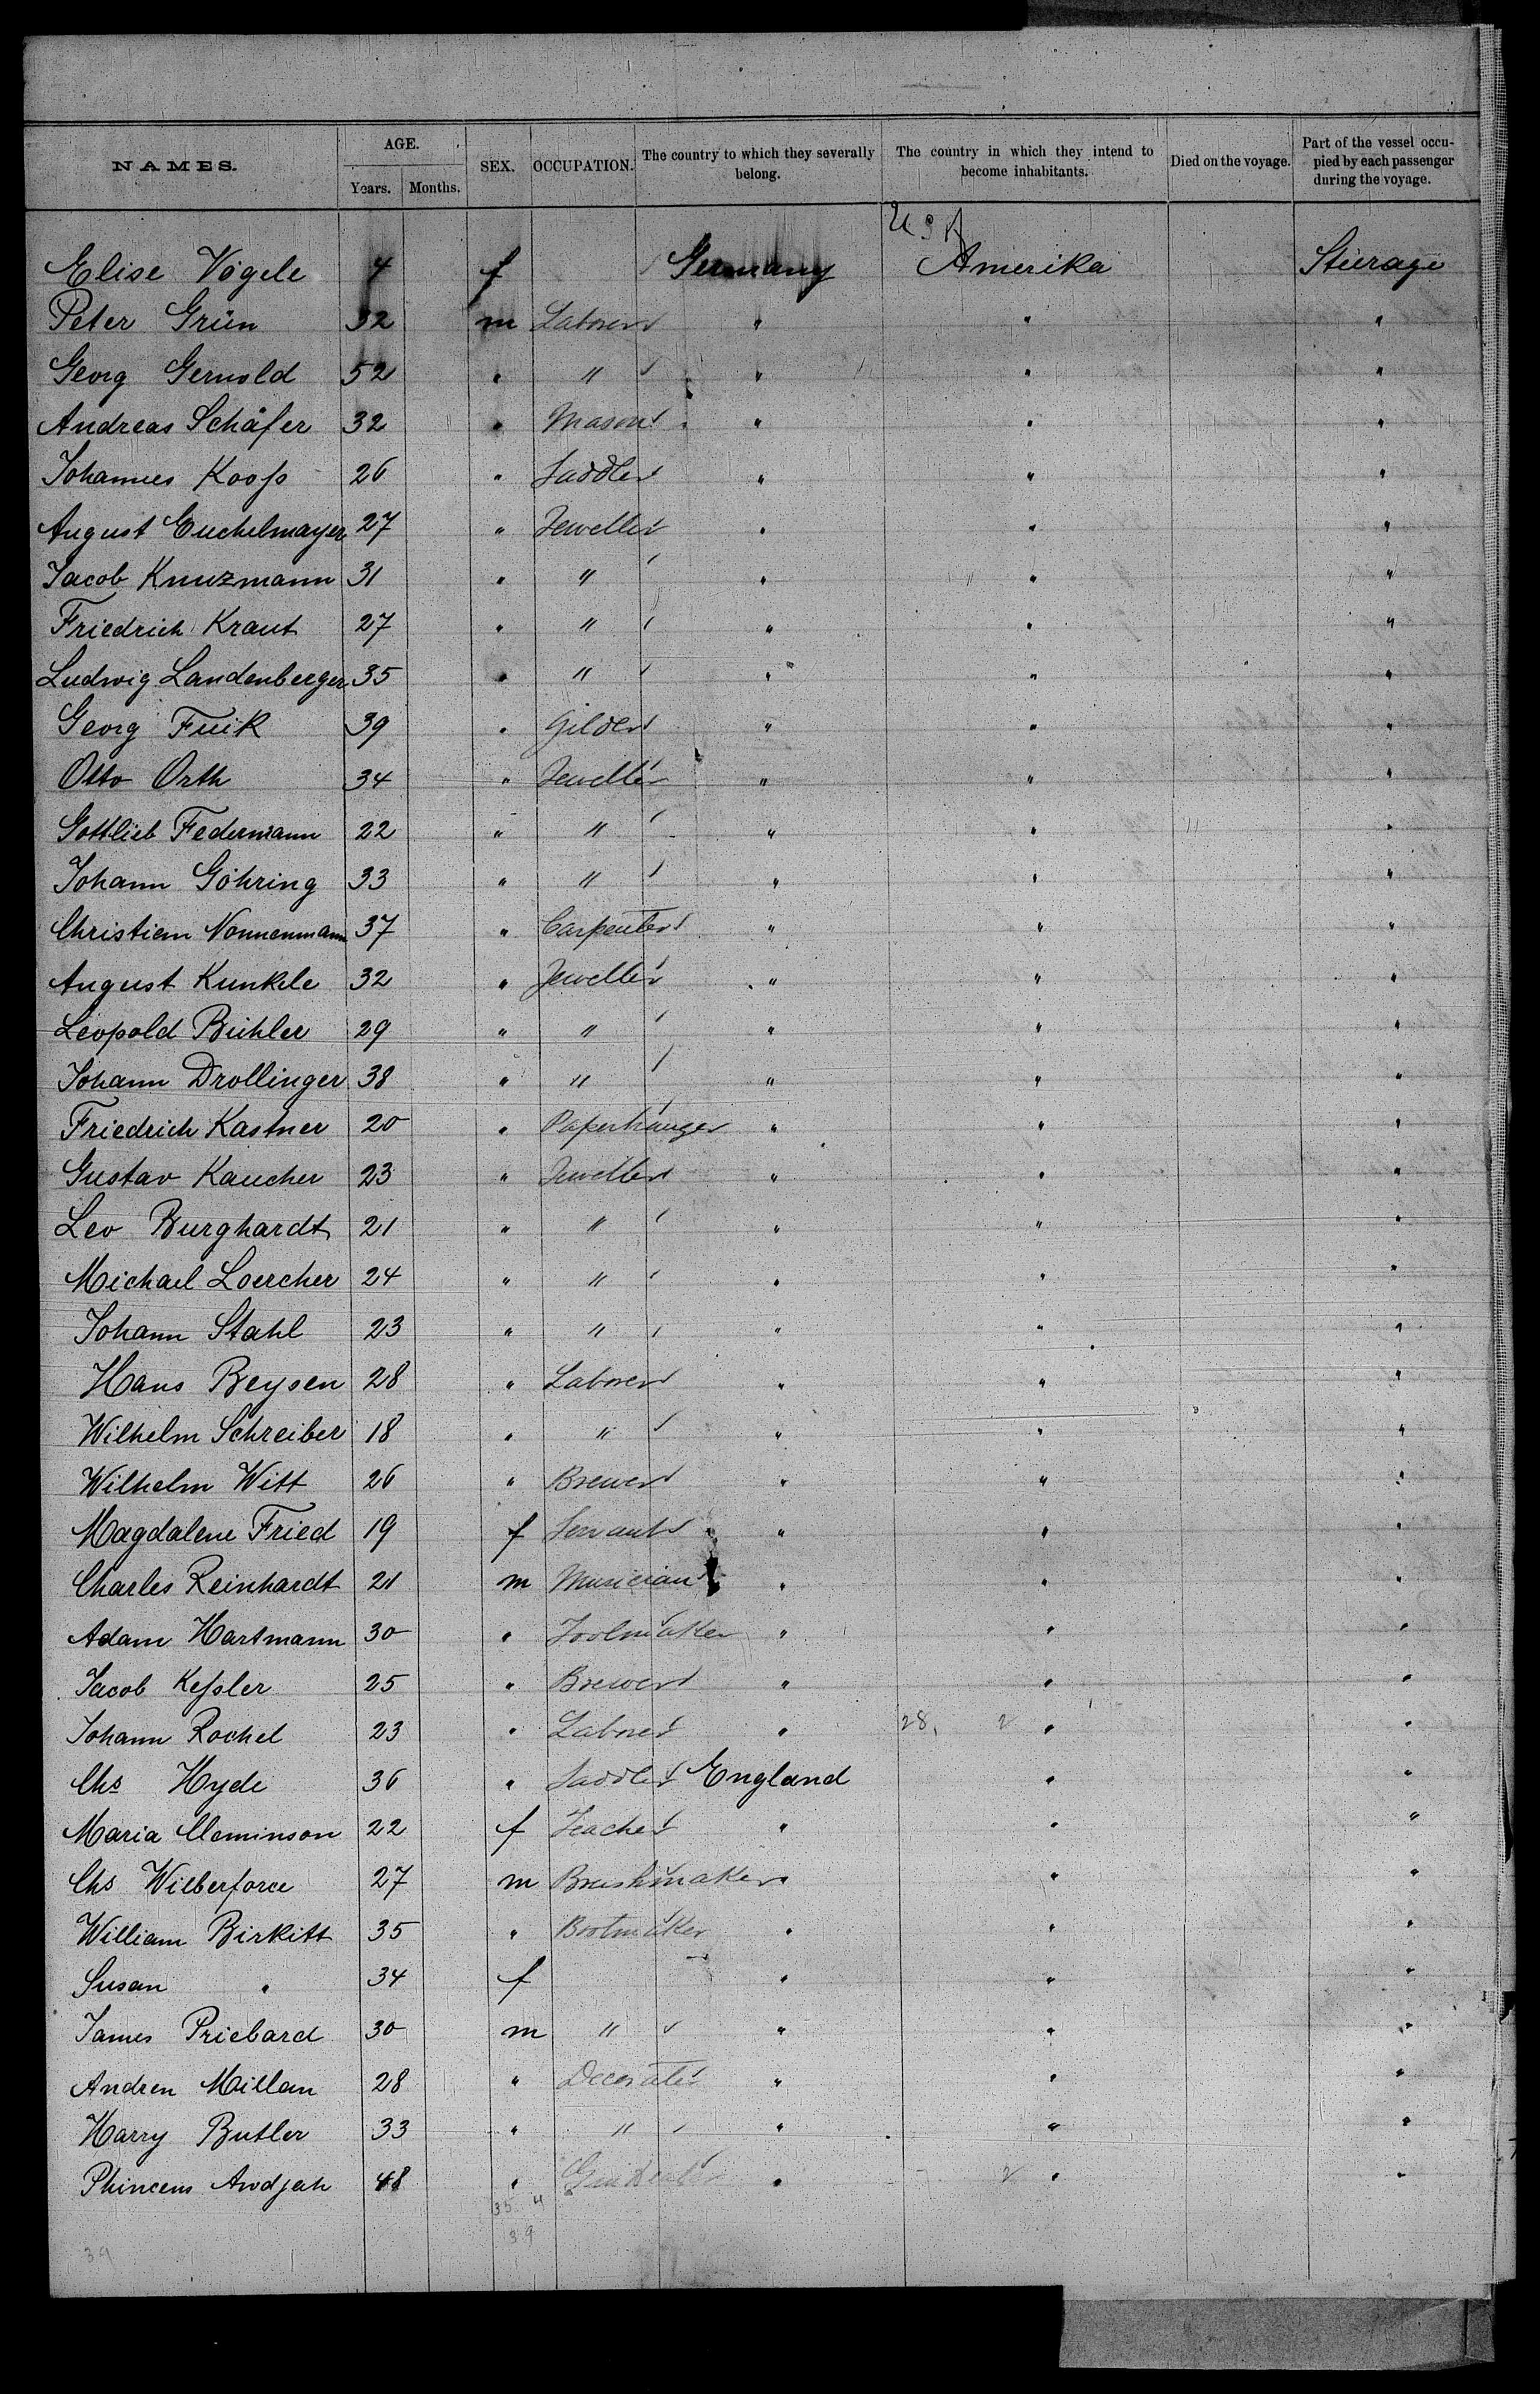 NAMES. AGE. SEX. OCCUPATION. The country to which they severally belong. The country in which they intend to become inhabitants. Died on the voyage. Part of the vessel occupied by each passenger during the voyage.
Years. Months.
USA
Elise Vögele 4 f Germany Amerika Steerage
Peter Grün 32 m Laborer " " "
Georg Gernold 52 " " " " "
Andreas Schäfer 32 " Mason " " "
Johannes Kooß 26 " Saddler " " "
August Euchelmayer 27 " Jeweller " " "
Jacob Knuzmann 31 " " " " "
Friedrich Kraut 27 " " " " "
Ludwig Landenberger 35 " " " " "
Georg Fuik 39 " Gilder " " "
Otto Orth 34 " Jeweller " " "
Gottlieb Federmann 22 " " " " "
Johann Göhring 33 " " " " "
Christian Nonnenmann 37 " Carpenter " " "
August Kunkele 32 " Jeweller " " "
Leopold Bühler 29 " " " " "
Johann Drollinger 38 " " " " "
Friedrich Kastner 20 " Paperhanger " " "
Gustav Kaucher 23 " Jeweller " " "
Leo Burghardt 21 " " " " "
Michael Loercher 24 " " " " "
Johann Stahl 23 " " " " "
Hans Beysen 28 " Laborer " " "
Wilhelm Schreiber 18 " " " " "
Wilhelm Witt 26 " Brewer " " "
Magdalene Fried 19 f Servant " " "
Charles Reinhardt 21 m Musician " " "
Adam Hartmann 30 " Toolmaker " " "
Jacob Keßler 25 " Brewer " " "
Johann Rochel 23 " Laborer " 28, 2 " "
Chs Hyde 36 " Saddler England " "
Maria Cleminson 22 f Teacher " " "
Chs Wilberforce 27 m Brushmaker " " "
William Birkitt 35 " Bootmaker " " "
Susan " 34 f " " "
James Priebard 30 m " " " "
Andren Millan 28 " Decorater " " "
Harry Butler 33 " " " " "
Phincens Awdjah 48 " " 2 " "
35 4
39
39